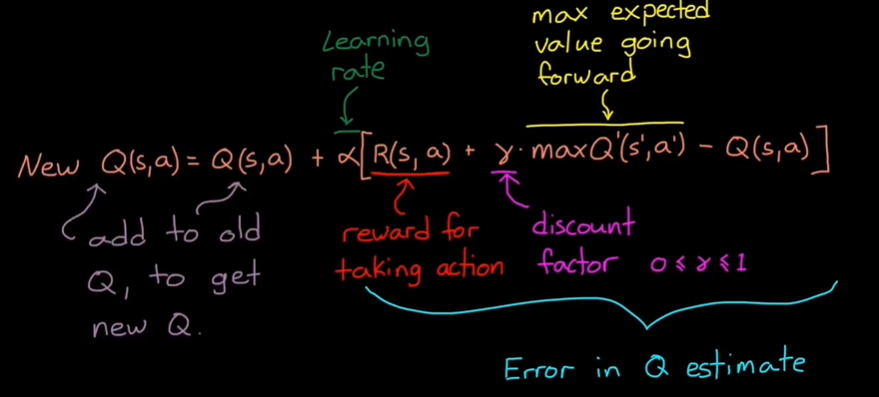 max expected
value going
forward
Learning
rate
New Q(s,a) = Q(s,a) + α[R(s, a) + γ · maxQ'(s',a') - Q(s,a)]
add to old
Q, to get
new Q.
reward for
taking action
discount
factor 0 ≤ γ ≤ 1
Error in Q estimate